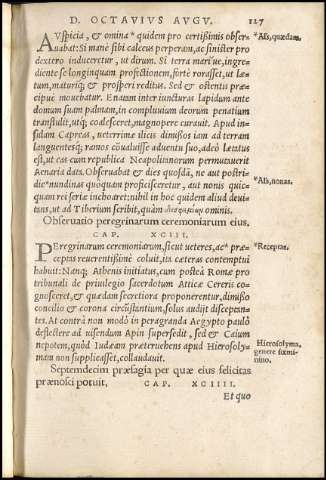 D. OCTAVIVS AVGV. 127
AVspicia, & omina* quidem pro certißimis obser *Aſs, quædam.
uabat: Si manè sibi calceus perperam, ac sinister pro
dextero induceretur, ut dirum. Si terra mariue, ingre
diente se longinquam profectionem, fortè rorasset, ut læ=
tum, maturiq; & prosperi reditus. Sed & ostentis præ=
cipuè mouebatur. Enatam inter iuncturas lapidum ante
domum suam palmam, in compluuium deorum penatium
transtulit, utq; coalesceret, magnopere curauit. Apud in=
sulam Capreas, ueterrimæ ilicis dimissos iam ad terram
languentesq; ramos conualuisse aduentu suo, adeò lætatus
est, ut eas cum republica Neapolitanorum permutauerit
Aenaria data. Obseruabat & dies quosdã, ne aut postri=
die *nundinas quòquam proficisceretur, aut nonis quic= *Aſs, nonas.
quam rei seriæ inchoaret: nihil in hoc quidem aliud deui=
tans, ut ad Tiberium scribit, quàm ominis.
Obseruatio peregrinarum ceremoniarum eius.
CAP. XCIII.
PEregrinarum ceremoniarum, sicut ueteres, ac* præ= *Receptas.
ceptas reuerentißimè coluit, ita cæteras contemptui
habuit: Nanq; Athenis initiatus, cum posteà Romæ pro
tribunali de priuilegio sacerdotum Atticæ Cereris co=
gnosceret, & quædam secretiora proponerentur, dimisso
concilio & corona circũstantium, solus audijt disceptan=
tes. At contrà non modò in peragranda Aegypto paulò
deflectere ad uisendum Apin supersedit, sed & Caium
nepotem, quòd Iudæam præteruehens apud Hierosoly= Hierosolyma,
man non supplicasset, collaudauit. genere fœmi=
nino.
Septemdecim præsagia per quæ eius felicitas
prænosci potuit. CAP. XCIIII.
Et quo